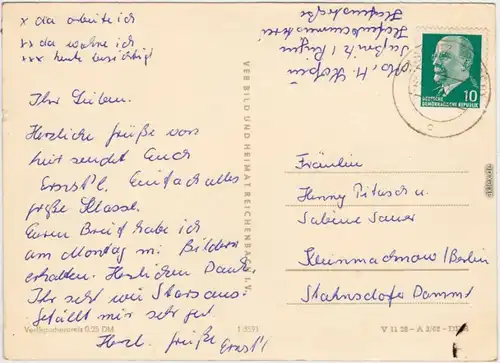 x da arbeite ich
xx da wohne ich
xxx heute besichtigt
Ihr Lieben.
Herzliche Grüße von
hier sendet Euch
Ernst'l. Einfach alles
große Klasse.
Euren Brief habe ich
am Montag m. Bildern
erhalten. Herzlichen Dank.
Ihr seht wie Stars aus.
Gefällt mir sehr gut.
Herzl. Grüße Ernst'l
Verbraucherpreis 0,20 DM
1 5591
VEB BILD UND HEIMAT REICHENBACH I. V.
Saßnitz / Rügen
Hafenstraße
10
DEUTSCHE
DEMOKRATISCHE REPUBLIK
Fräulein
Henny Pitasch u.
Sabine Sauer
Kleinmachnow/Berlin
Stahnsdofer Damm
V 11 28 - A 2/62 - DDR